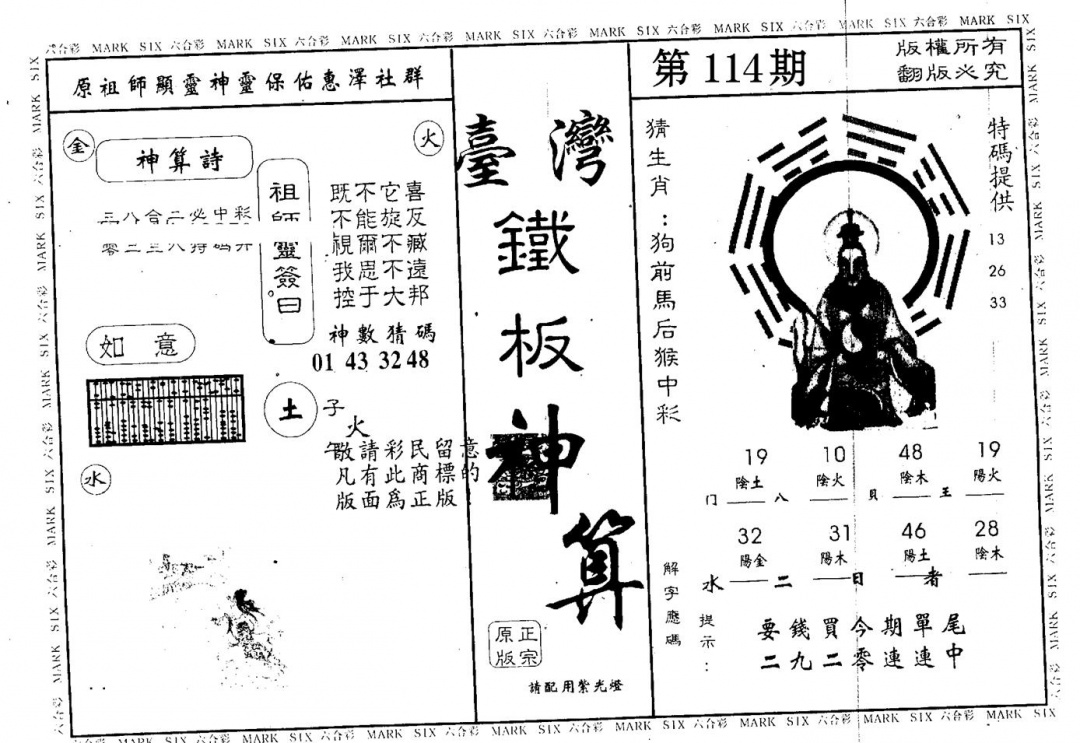 六合彩 MARK SIX 六合彩 MARK SIX 六合彩 MARK SIX 六合彩 MARK SIX 六合彩 MARK SIX 六合彩 MARK SIX 六合彩 MARK SIX 六合彩 MARK SIX
原祖師顯靈神靈保佑惠澤社群
金
神算詩
火
三八合二必中彩
祖師靈簽曰
既不它喜
不能旋反
視爾不臧
我思不遠
控于大邦
神數猜碼
01 43 32 48
如意
土
子
火
水
敬請彩民留意
凡有此商標的
版面為正版
臺灣
鐵
板
神
算
正宗
原版
請配用紫光燈
第114期
版權所有
翻版必究
猜生肖：狗前馬后猴中彩
特碼提供
13
26
33
19 10 48 19
陰土 陰火 陰木 陽火
门 八 貝 王
32 31 46 28
陽金 陽木 陽土 陰木
水 二 日 者
解字應碼
提示：
要錢買今期單尾
二九二零連連中